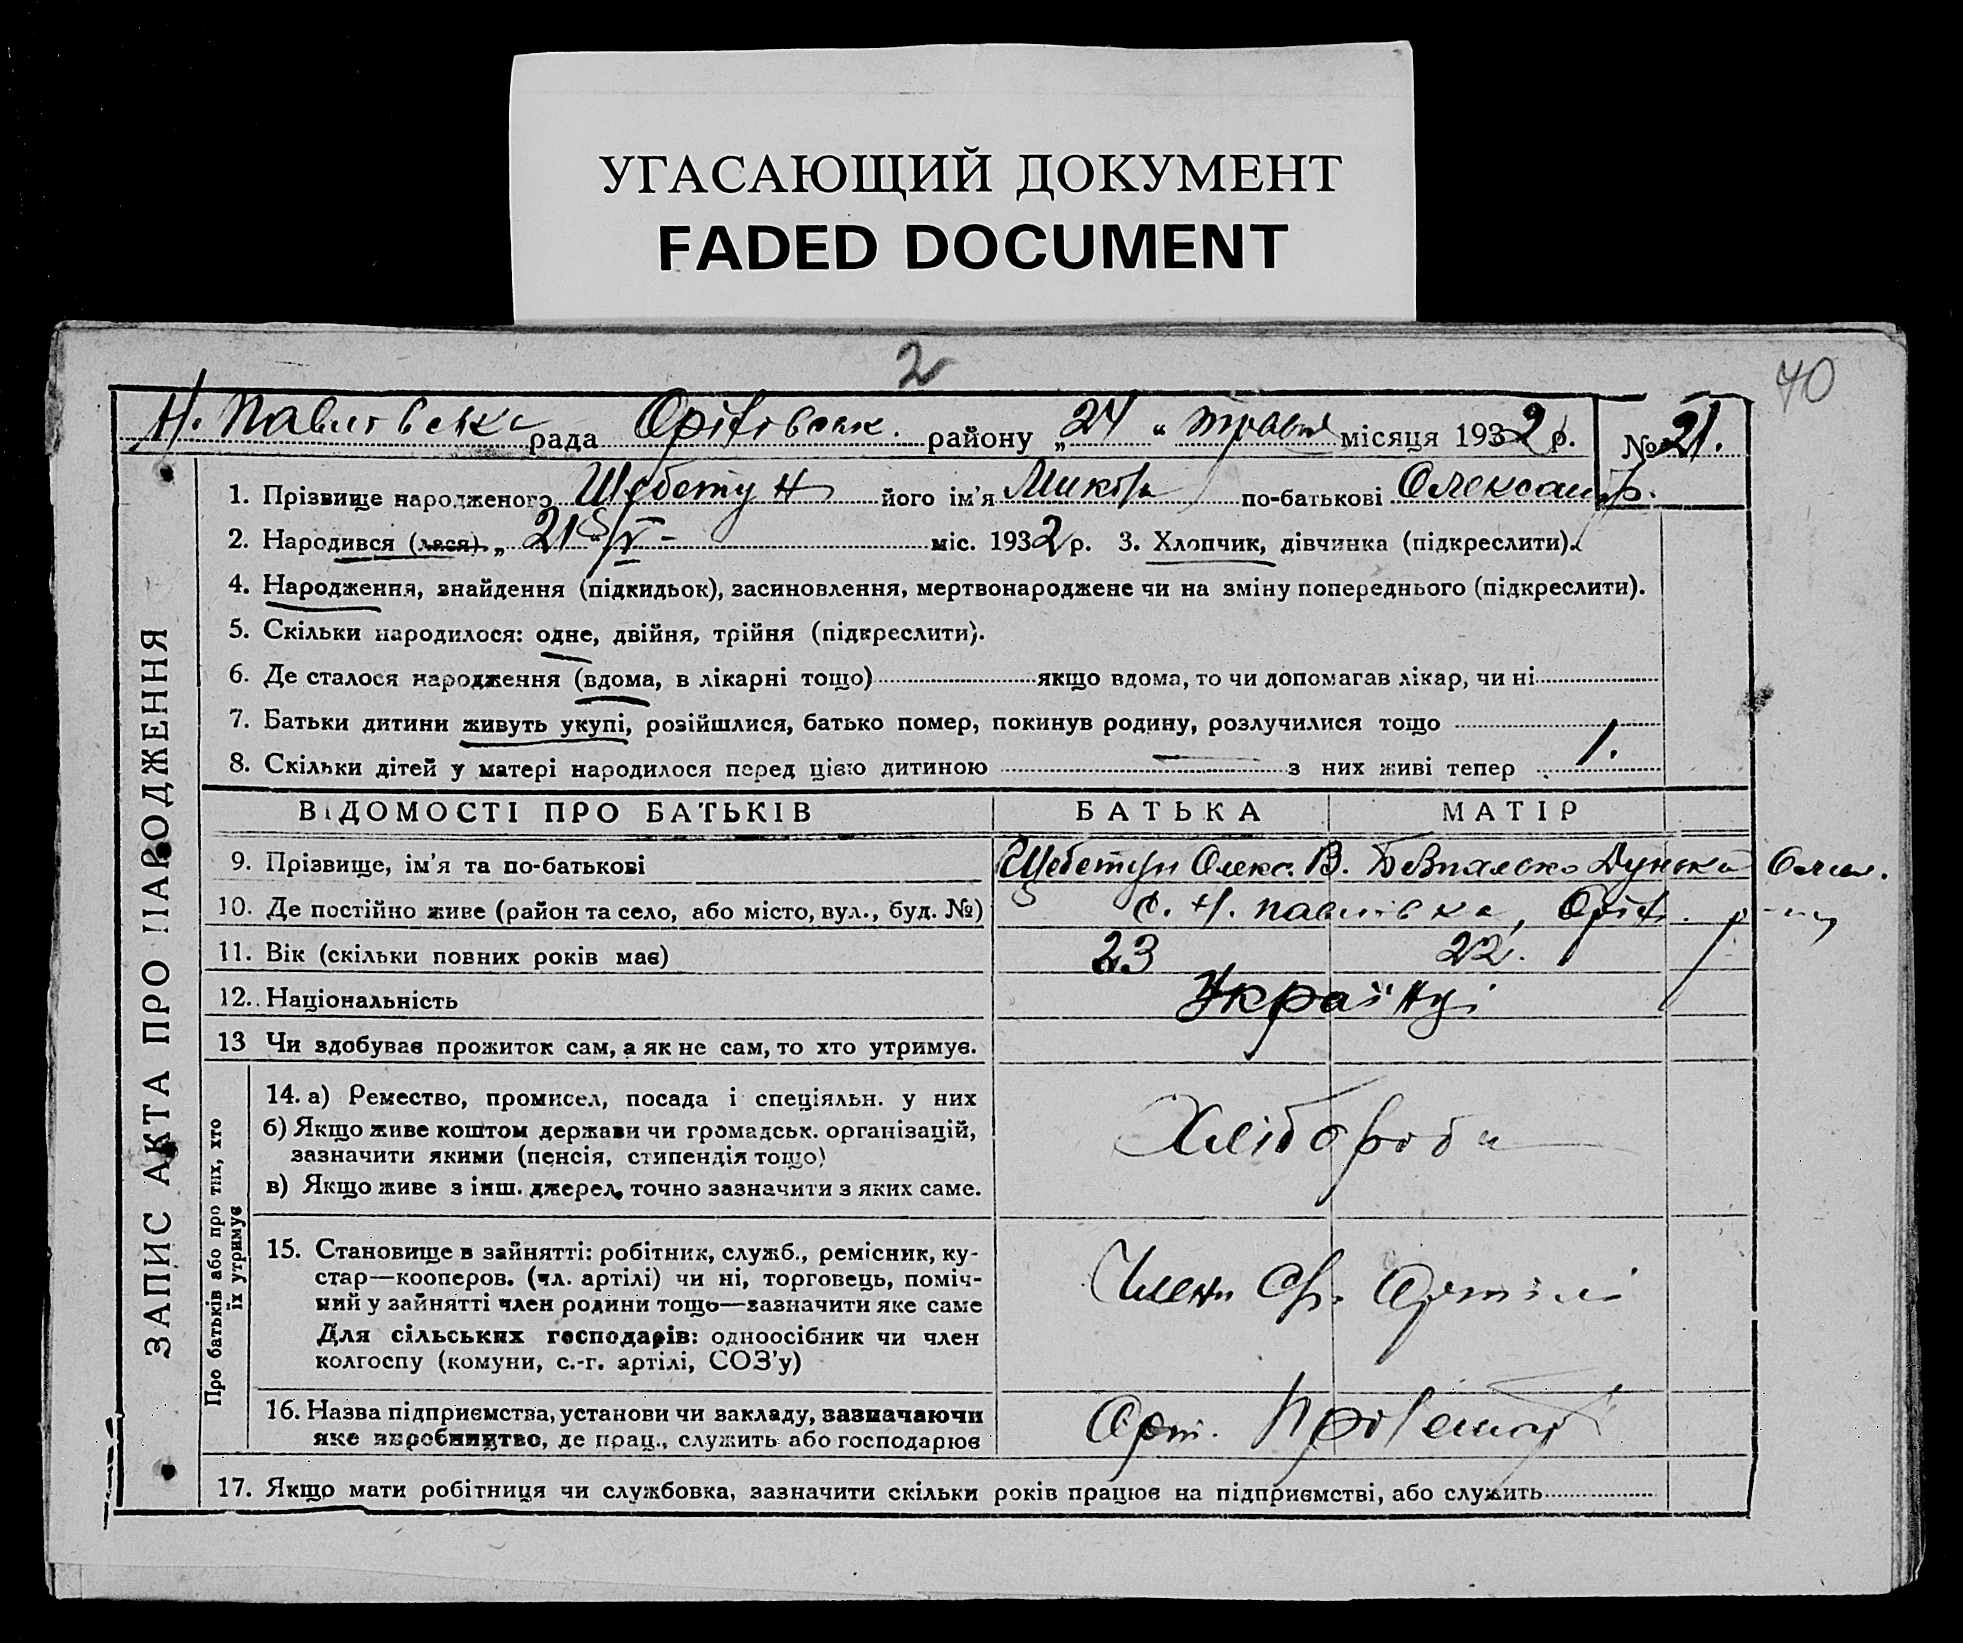 УГАСАЮЩИЙ ДОКУМЕНТ
FADED DOCUMENT
2
70
Н. Павлівська рада Оріхівськ. району „24“ травня місяця 1932 р. № 21.
1. Прізвище народженого Щебетун його ім'я Микола по-батькові Олександр.
2. Народився (лася) „21“ V - міс. 1932 р. 3. Хлопчик, дівчинка (підкреслити).
4. Народження, знайдення (підкидьок), засиновлення, мертвонароджене чи на зміну попереднього (підкреслити).
5. Скільки народилося: одне, двійня, трійня (підкреслити).
6. Де сталося народження (вдома, в лікарні тощо) якщо вдома, то чи допомагав лікар, чи ні
7. Батьки дитини живуть укупі, розійшлися, батько помер, покинув родину, розлучилися тощо
8. Скільки дітей у матері народилося перед цією дитиною — з них живі тепер 1.
ЗАПИС АКТА ПРО НАРОДЖЕННЯ
ВІДОМОСТІ ПРО БАТЬКІВ БАТЬКА МАТІР
9. Прізвище, ім'я та по-батькові Щебетун Олекс. В. Дунька
10. Де постійно живе (район та село, або місто, вул., буд. №) с. Н. Павлівка, Оріх. р-ну
11. Вік (скільки повних років має) 23 22.
12. Національність Українці
13 Чи здобував прожиток сам, а як не сам, то хто утримує.
Про батьків або про тих, хто
їх утримує
14. а) Ремество, промисел, посада і спеціяльн. у них
б) Якщо живе коштом держави чи громадськ. організацій,
зазначити якими (пенсія, стипендія тощо)
в) Якщо живе з інш. джерел, точно зазначити з яких саме.
Хлібороби
15. Становище в зайнятті: робітник, служб., ремісник, ку-
стар—кооперов. (чл. артілі) чи ні, торговець, поміч-
ний у зайнятті член родини тощо—зазначити яке саме
Для сільських господарів: одноосібник чи член
колгоспу (комуни, с.-г. артілі, СОЗ'у)
Члени Артілі
16. Назва підприємства, установи чи закладу, зазначаючи
яке виробництво, де прац., служить або господарює
Арт.
17. Якщо мати робітниця чи службовка, зазначити скільки років працює на підприємстві, або служить